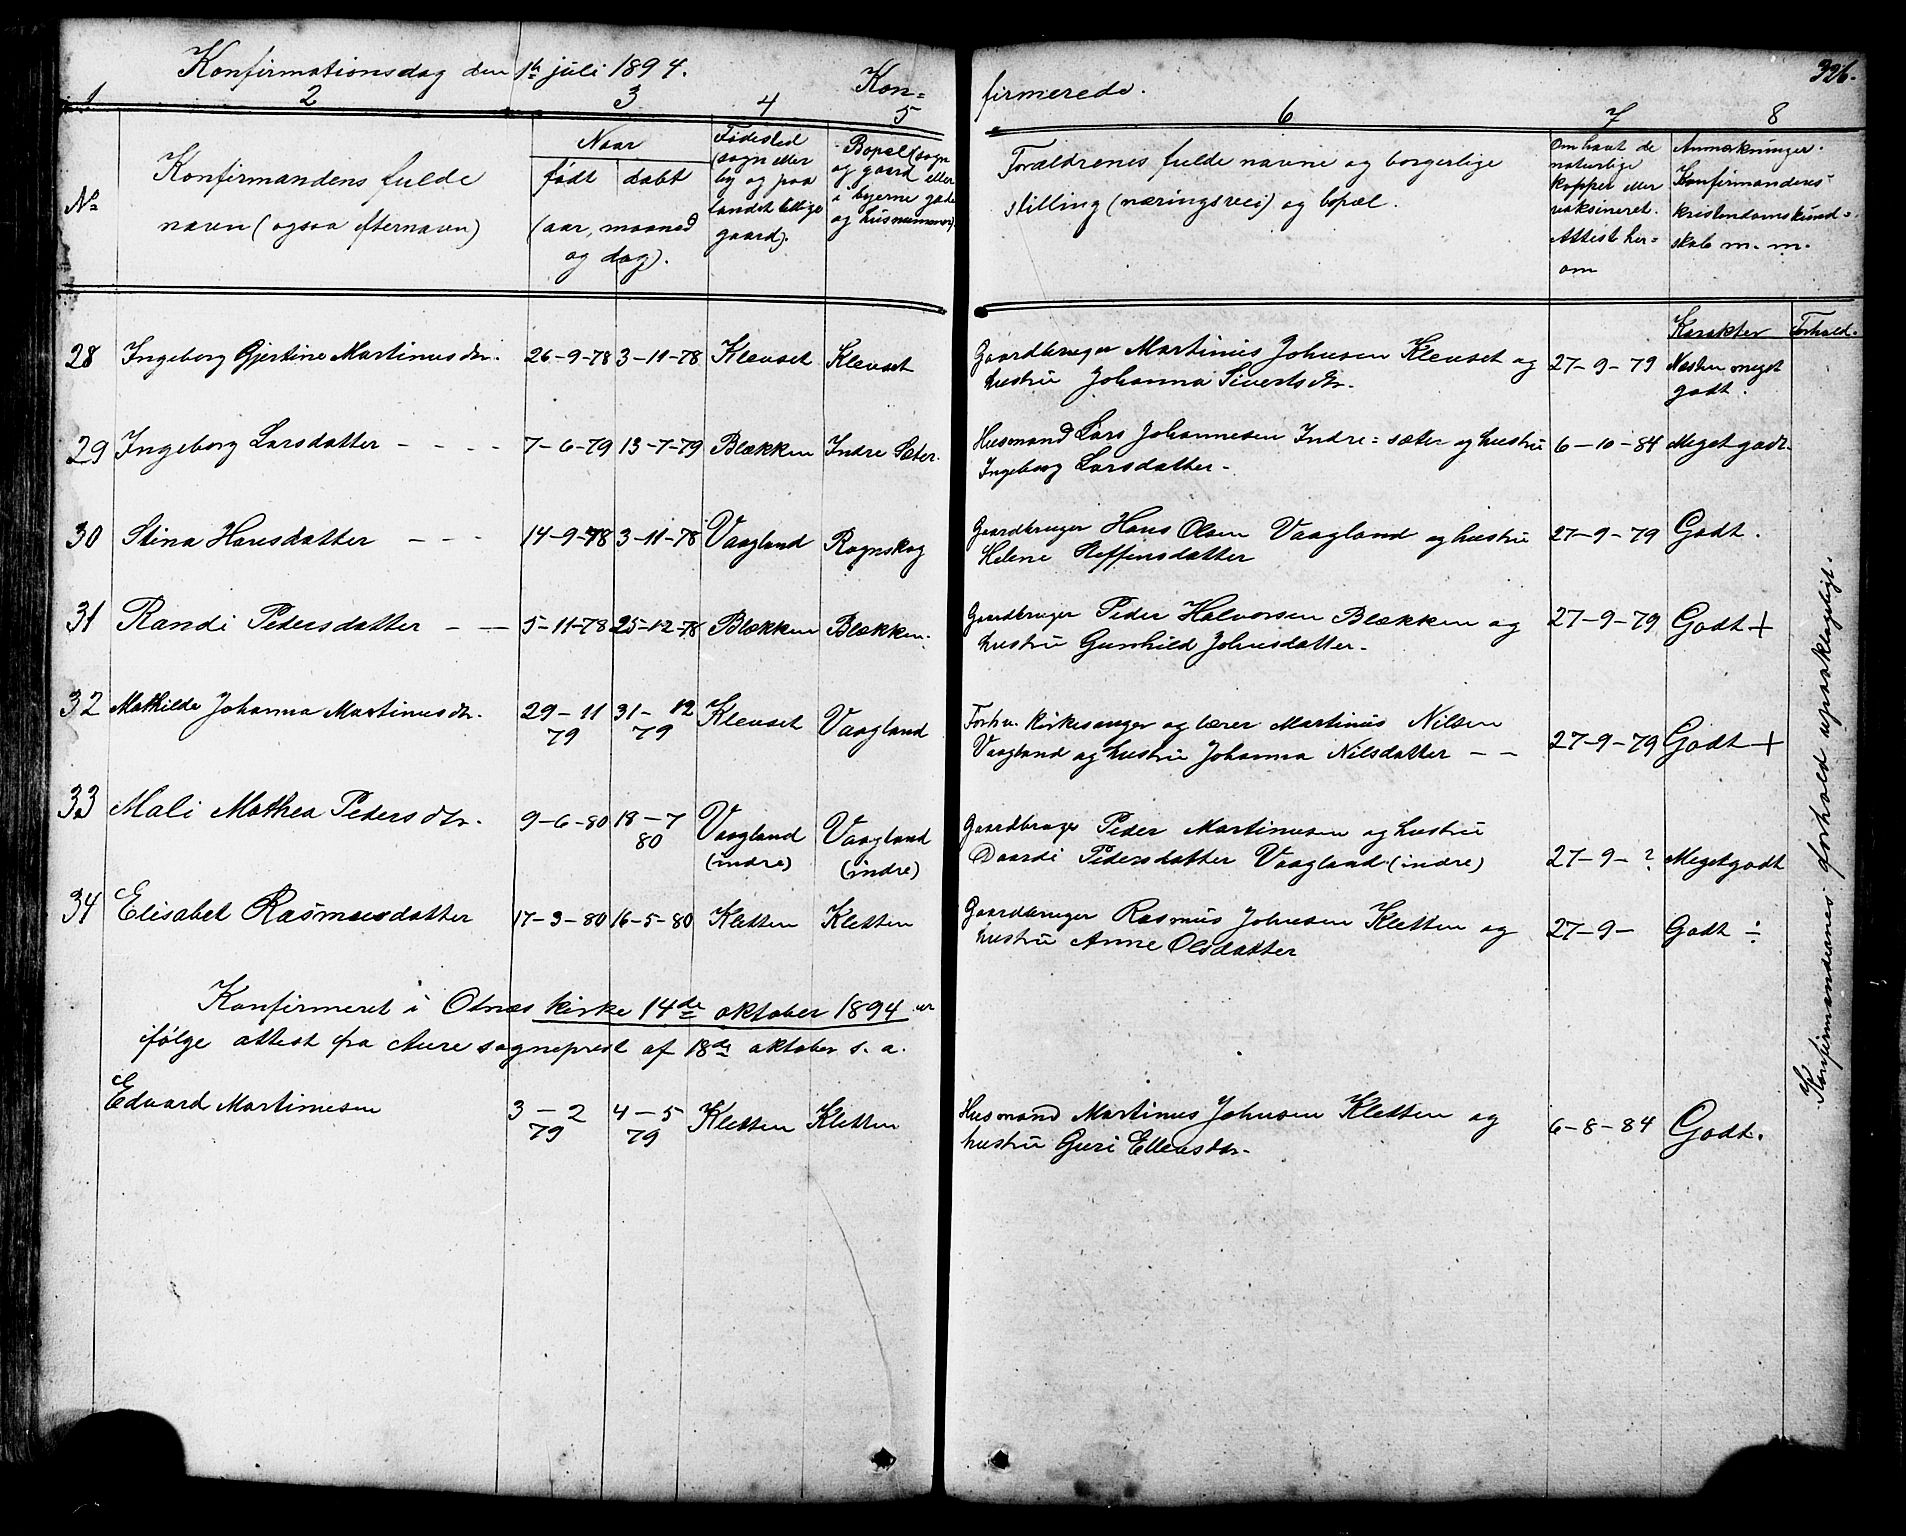 Konfirmationsdag den 1ste juli 1894.
Kon=
firmerede.
326.
1 2 3 4 5 6 7 8
No
Konfirmandens fulde
navn (ogsaa efternavn)
Naar
født døbt
(aar, maaned
og dag).
Fødested
(sogn eller
by og paa
landet tillige
gaard).
Bopæl (sogn
og gaard eller
i byerne gade
og husnummer).
Forældrenes fulde navne og borgerlige
stilling (næringsvei) og bopæl.
Om havt de
naturlige
kopper eller
vaksineret.
Attest her=
om
Anmærkninger.
Konfirmandenes
kristendomskund=
skab m. m.
Karakter Forhold.
28 Ingeborg Gjertine Martinusdtr. 26-9-78 3-11-78 Klevset Klevset Gaardbruger Martinus Johnsen Klevset og 27-9-79 Næsten meget
hustru Johanna Sivertsdtr. godt.
29 Ingeborg Larsdatter - - - 7-6-79 13-7-79 Blækken Indre Sæter. Husmand Lars Johannesen Indre=sæter og hustru 6-10-84 Meget godt.
Ingeborg Larsdatter -
30 Stina Hansdatter - - - 14-9-78 3-11-78 Vaagland Rognskog Gaardbruger Hans Olsen Vaagland og hustru 27-9-79 Godt.
Helene Steffensdatter
31 Randi Pedersdatter - - 5-11-78 25-12-78 Blækken Blækken. Gaardbruger Peder Halvorsen Blækken og 27-9-79 Godt +
hustru Gunhild Johnsdatter -
32 Mathilde Johanna Martinusdtr. 29-11 31-12 Klevset Vaagland Forhv. kirkesanger og lærer Martinus Nilsen
79 79 Vaagland og hustru Johanna Nilsdatter - - 27-9-79 Godt +
33 Mali Mathea Pedersdtr. 9-6-80 18-7 Vaagland Vaagland Gaardbruger Peder Martinusen og hustru
80 (indre) (indre) Daardi Pedersdatter Vaagland (indre) 27-9-? Meget godt
34 Elisabet Rasmusdatter 17-3-80 16-5-80 Kletten Kletten Gaardbruger Rasmus Johnsen Kletten og 27-9- Godt ÷
hustru Anne Olsdatter
Konfirmeret i Otnes kirke 14de oktober 1894
ifølge attest fra Aure sogneprest af 18de oktober s. a.
Edvard Martinusen 3-2 4-5 Kletten Kletten Husmand Martinus Johnsen Kletten og 6-8-84 Godt.
79 79 hustru Guri Ellensdtr.
Konfirmandernes forhold upaaklageligt.